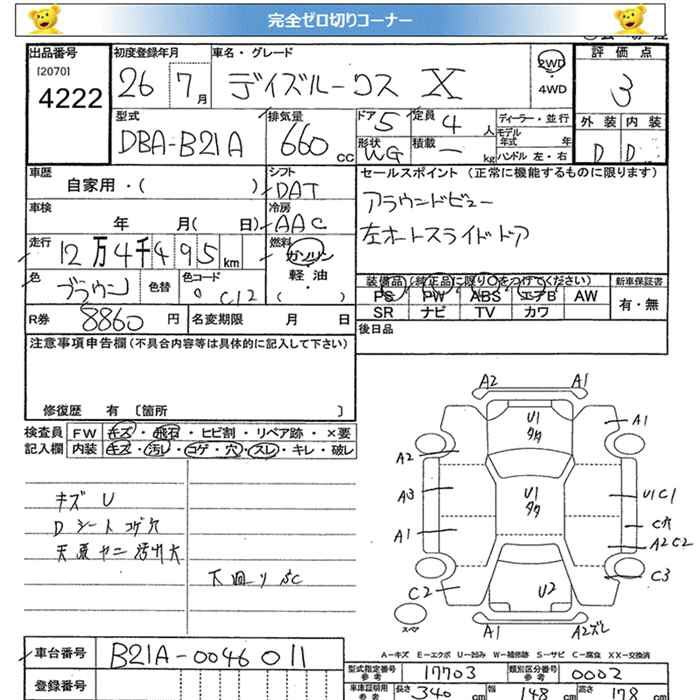 完全ゼロ切りコーナー
出品番号
[2070]
4222
初度登録年月
26 7月
車名・グレード
デイズルークス X
2WD
・
4WD
評価点
3
型式
DBA-B21A
排気量
660 cc
ドア 5
定員 4 人
形状 WG
積載 — kg
ディーラー・並行
モデル年式 年
ハンドル 左・右
外装 内装
D D
車歴
自家用・( )
シフト
DAT
セールスポイント (正常に機能するものに限ります)
アラウンドビュー
左オートスライドドア
車検
年 月( 日)
冷房
AAC
走行
12万4千495km
燃料
ガソリン
軽油
( )
色
ブラウン
色替
色コード
C12
装備品(純正品に限り○をつけてください)
PS PW ABS エアB AW
SR ナビ TV カワ
新車保証書
有・無
R券
8860円
名変期限 月 日
後日品
注意事項申告欄(不具合内容等は具体的に記入して下さい)
修復歴 有 〔箇所 〕
検査員
記入欄
FW キズ・飛石・ヒビ割・リペア跡・×要
内装 キズ・汚レ・コゲ・穴・スレ・キレ・破レ
キズ U
D シートコゲ穴
天張ヤニ汚レ大
下廻り SC
A2 A1
U1
タク
A1
A2
A3
U1
タク
U1C1
C穴
A1
A2C2
C2
C3
U2
スペア
A1
A2ズレ
A-キズ E-エクボ U-凹み W-補修跡 S-サビ C-腐食 XX-交換済
車台番号
B21A-0046011
型式指定番号
参考
17703
類別区分番号
参考
0002
登録番号
車庫証明用
参考
長さ 340 cm
幅 148 cm
高さ 178 cm